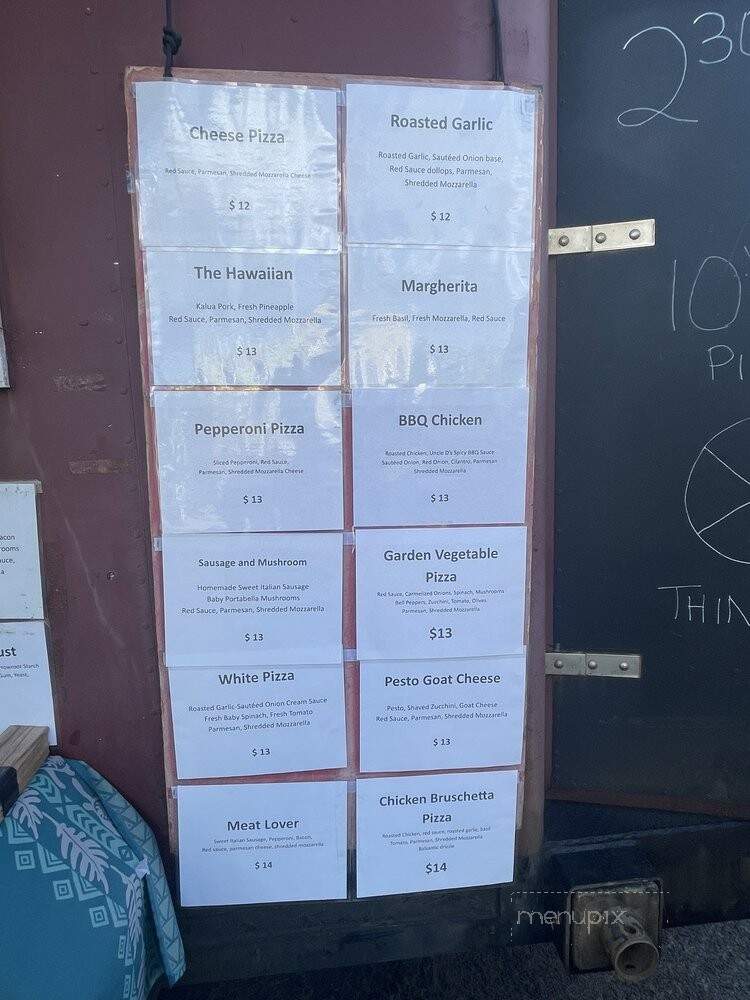 Cheese Pizza
Red Sauce, Parmesan, Shredded Mozzarella Cheese
$ 12
Roasted Garlic
Roasted Garlic, Sautéed Onion base,
Red Sauce dollops, Parmesan,
Shredded Mozzarella
$ 12
The Hawaiian
Kalua Pork, Fresh Pineapple
Red Sauce, Parmesan, Shredded Mozzarella
$ 13
Margherita
Fresh Basil, Fresh Mozzarella, Red Sauce
$ 13
Pepperoni Pizza
Sliced Pepperoni, Red Sauce,
Parmesan, Shredded Mozzarella Cheese
$ 13
BBQ Chicken
Roasted Chicken, Uncle D's Spicy BBQ Sauce
Sautéed Onion, Red Onion, Cilantro, Parmesan
Shredded Mozzarella
$ 13
Sausage and Mushroom
Homemade Sweet Italian Sausage
Baby Portabella Mushrooms
Red Sauce, Parmesan, Shredded Mozzarella
$ 13
Garden Vegetable
Pizza
Red Sauce, Carmelized Onions, Spinach, Mushrooms
Bell Peppers, Zucchini, Tomato, Olives
Parmesan, Shredded Mozzarella
$13
White Pizza
Roasted Garlic-Sautéed Onion Cream Sauce
Fresh Baby Spinach, Fresh Tomato
Parmesan, Shredded Mozzarella
$ 13
Pesto Goat Cheese
Pesto, Shaved Zucchini, Goat Cheese
Red Sauce, Parmesan, Shredded Mozzarella
$ 13
Meat Lover
Sweet Italian Sausage, Pepperoni, Bacon,
Red sauce, parmesan cheese, shredded mozzarella
$ 14
Chicken Bruschetta
Pizza
Roasted Chicken, red sauce, roasted garlic, basil
Tomato, Parmesan, Shredded Mozzarella
Balsamic drizzle
$14
2 30
10
PI
THIN
acon
rooms
auce,
a
ust
rrowroot Starch
Gum, Yeast,
menupix